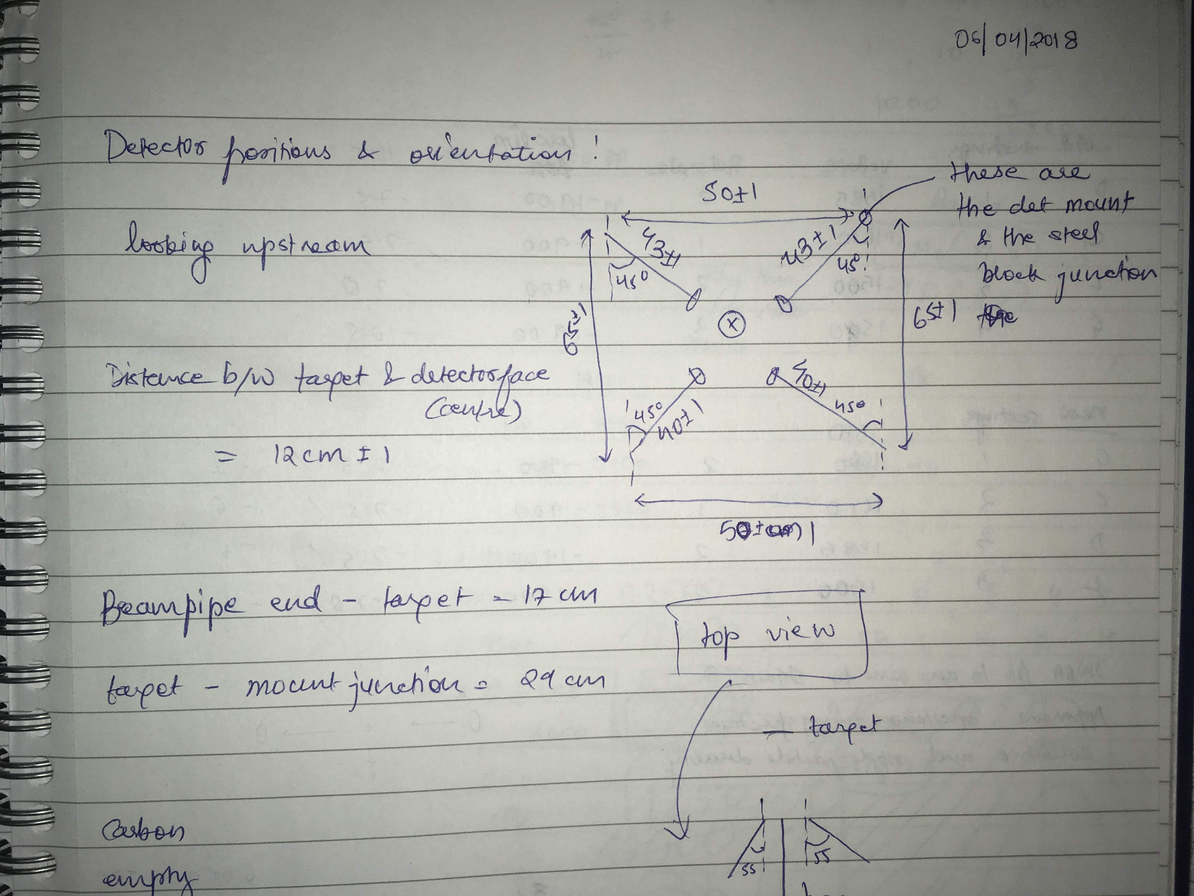 06/04/2018
Detector positions & orientation !
looking upstream
50±1
these are
the det mount
& the steel
block junction
43±1
43±1
45°
45°
65±1
65±1
X
Distance b/w target & detectorface
(centre)
= 12 cm ± 1
40±1
45°
45°
40±1
50±cm 1
Beampipe end - target = 17 cm
top view
target - mount junction = 29 cm
- target
Carbon
empty
55
55